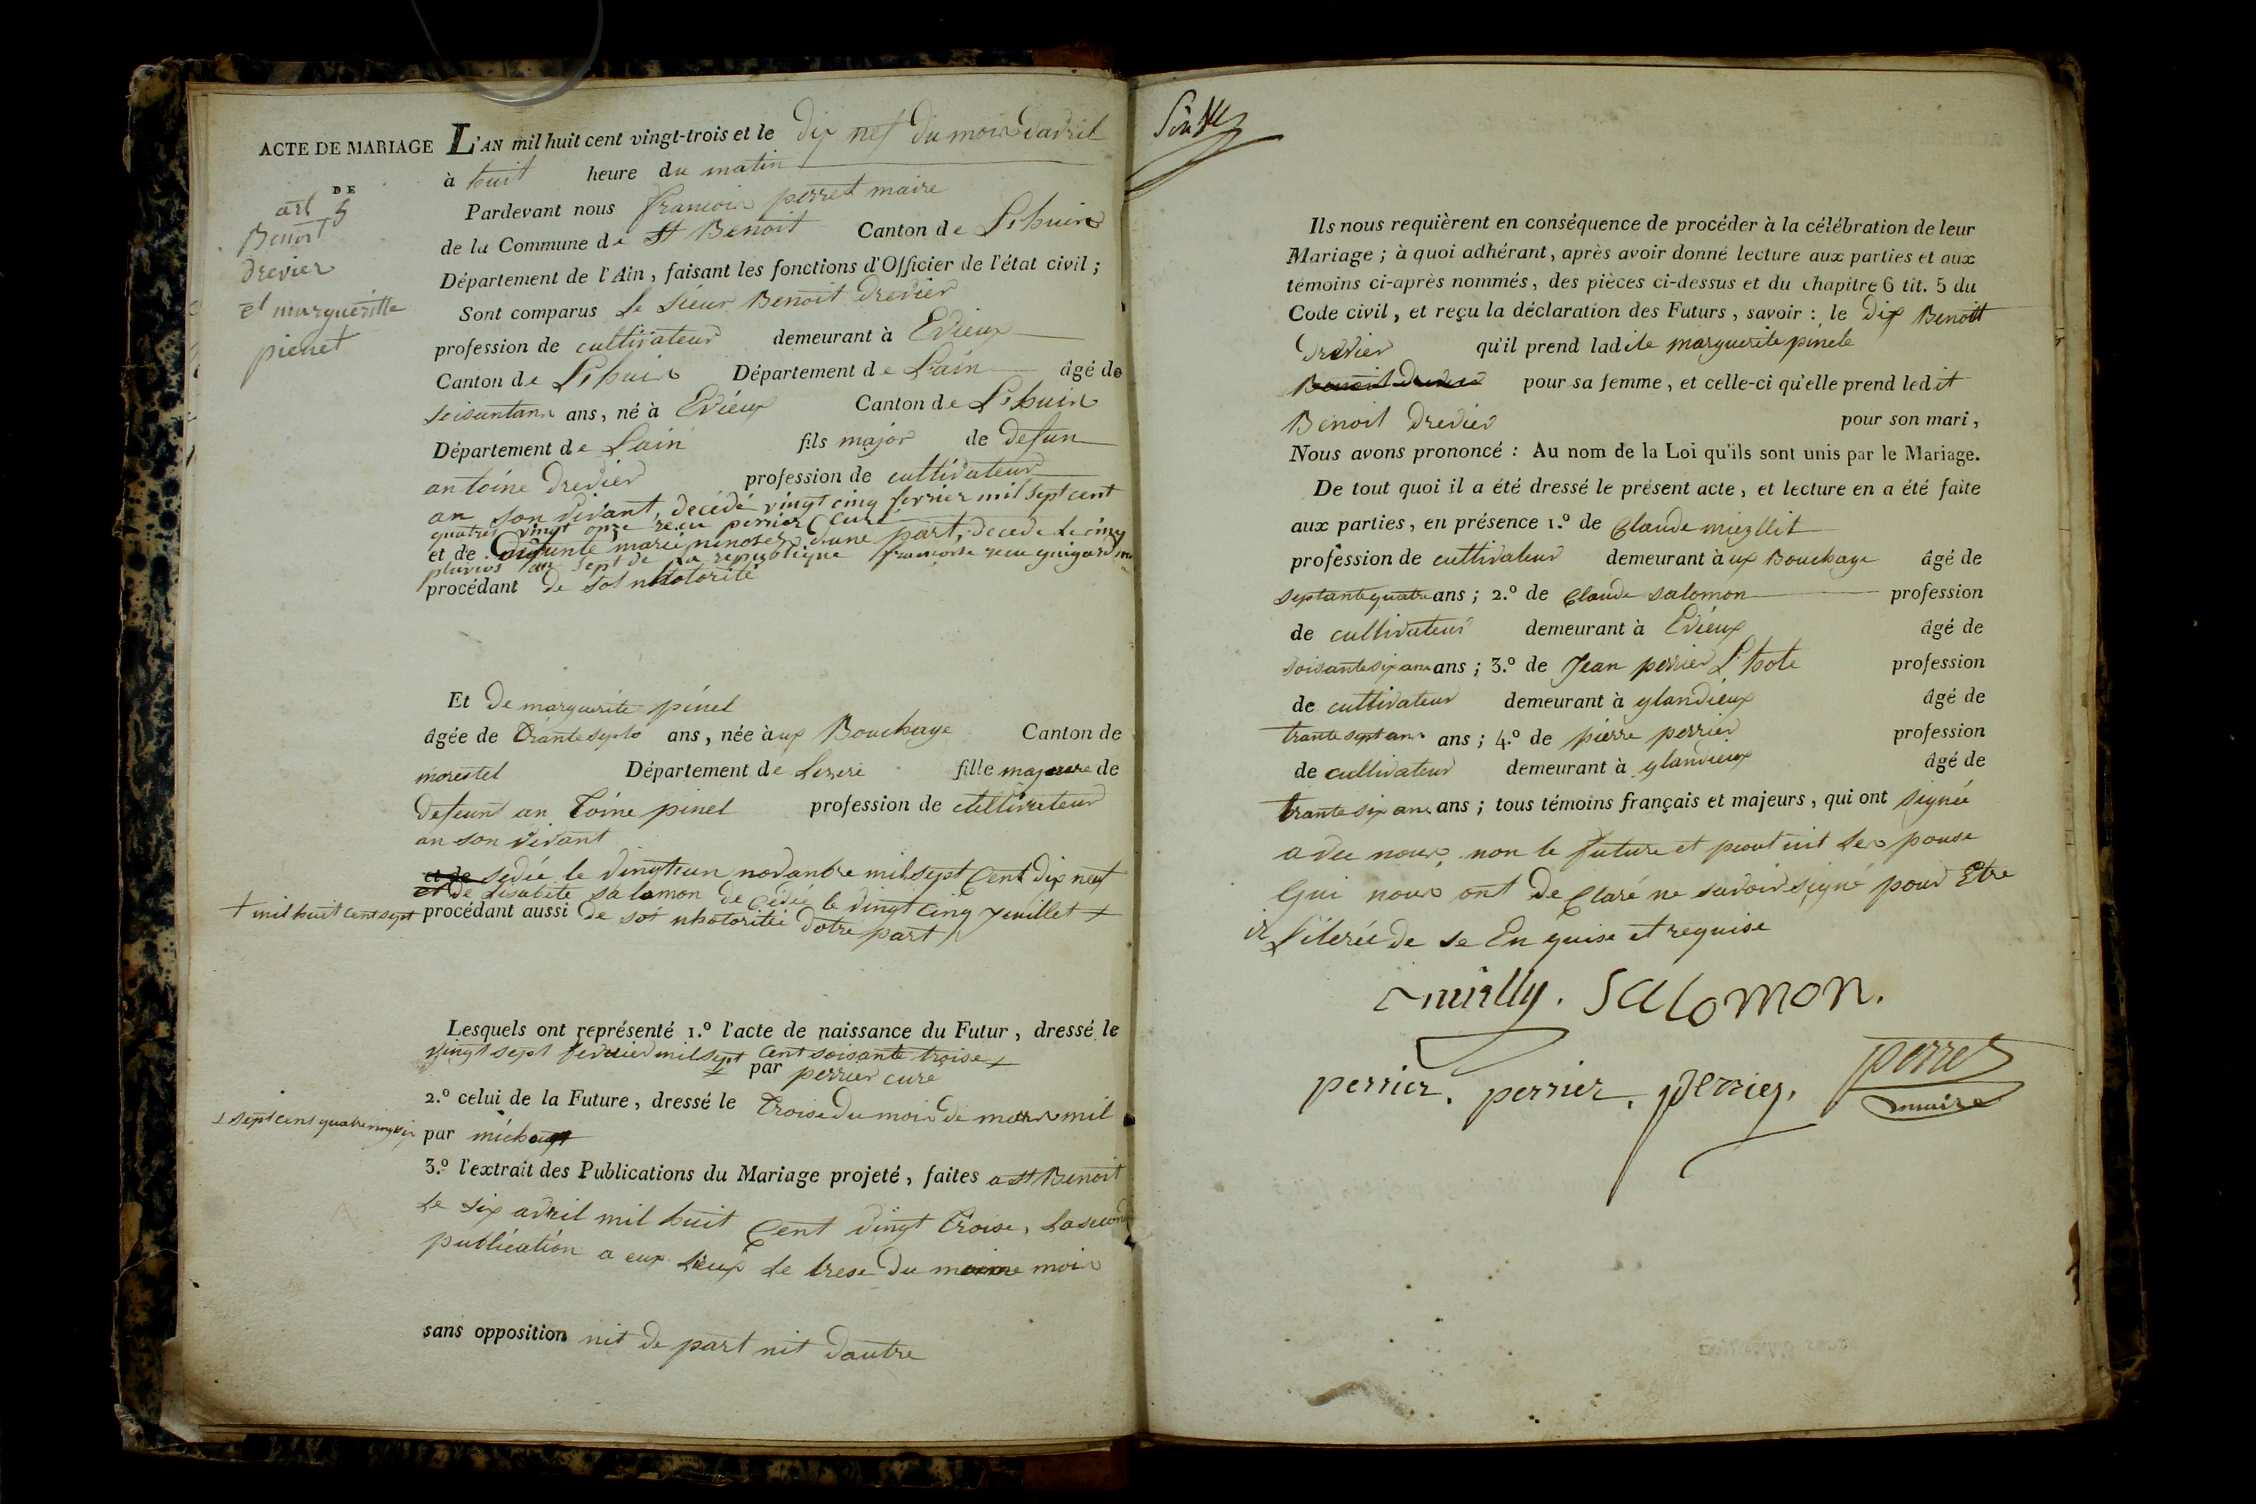 ACTE DE MARIAGE
DE
art 5
Benoit
drevier
et margueritte
pienet
L'AN mil huit cent vingt-trois et le dix nef du mois davril
à huit heure du matin
Pardevant nous francois perret maire
de la Commune de St Benoit Canton de Lhuire
Département de l'Ain, faisant les fonctions d'Officier de l'état civil;
Sont comparus le sieur Benoit drevier
profession de cultivateur demeurant à Evieux
Canton de Lhuis Département de Lain âgé de
soisantans ans, né à Evieux Canton de Lhuis
Département de Lain fils major de defun
antoine drevier profession de cultivateur
an son vivant, decédé vingt cinq fevrier mil sept cent
quatres vingt onze recu perrier Curé
et de defunte marie d'une part, decede le cinq
pluvios an sept de la republique francoise recu guigard
procédant de soi nhotorité
Et de marguerite pinel
âgée de trante septs ans, née à ux Bouchage Canton de
morestel Département de Lisere fille majeure de
defeunt an toine pinel profession de cultivateur
an son vivant
et de sedée le vingt un novanbre mil sept Cent dix neuf
et de lisabete salamon de cedée le vingt cinq jeuillet +
+ mil huit cent sept
procédant aussi de soi nhotoritée dotre part
Lesquels ont représenté 1.º l'acte de naissance du Futur, dressé le
vingt sept fevrier mil sept Cent soisante troise
par perrier curé
2.º celui de la Future, dressé le troise du mois de mars mil
+ sept cent quatre vingt six
par michaut
3.º l'extrait des Publications du Mariage projeté, faites a St Benoit
le six avril mil huit Cent vingt troise, la second
publication a eux lieux le trese du meme mois
sans opposition nit de part nit dautre
Ils nous requièrent en conséquence de procéder à la célébration de leur
Mariage; à quoi adhérant, après avoir donné lecture aux parties et aux
témoins ci-après nommés, des pièces ci-dessus et du chapitre 6 tit. 5 du
Code civil, et reçu la déclaration des Futurs, savoir: le dix Benoit
drevier qu'il prend ladite marguerite pinele
Benoit drevier pour sa femme, et celle-ci qu'elle prend ledit
Benoit drevier pour son mari,
Nous avons prononcé: Au nom de la Loi qu'ils sont unis par le Mariage.
De tout quoi il a été dressé le présent acte, et lecture en a été faite
aux parties, en présence 1.º de Claude
profession de cultivateur demeurant à ux Bouchage âgé de
septante quatre ans; 2.º de Claude salomon profession
de cultivateur demeurant à Evieux âgé de
soisante six ans ans; 3.º de Jean perrier L'hote profession
de cultivateur demeurant à glandieux âgé de
trante sept ans ans; 4.º de pierre perrier profession
de cultivateur demeurant à glandieux âgé de
trante six ans ans; tous témoins français et majeurs, qui ont signée
avec nous non le future et les pouse
Qui nous ont de Claré ne savoir signé pour Etre
ilitérée de se En quise et requise
Salomon.
perrier. perrier. perrier. perret
maire